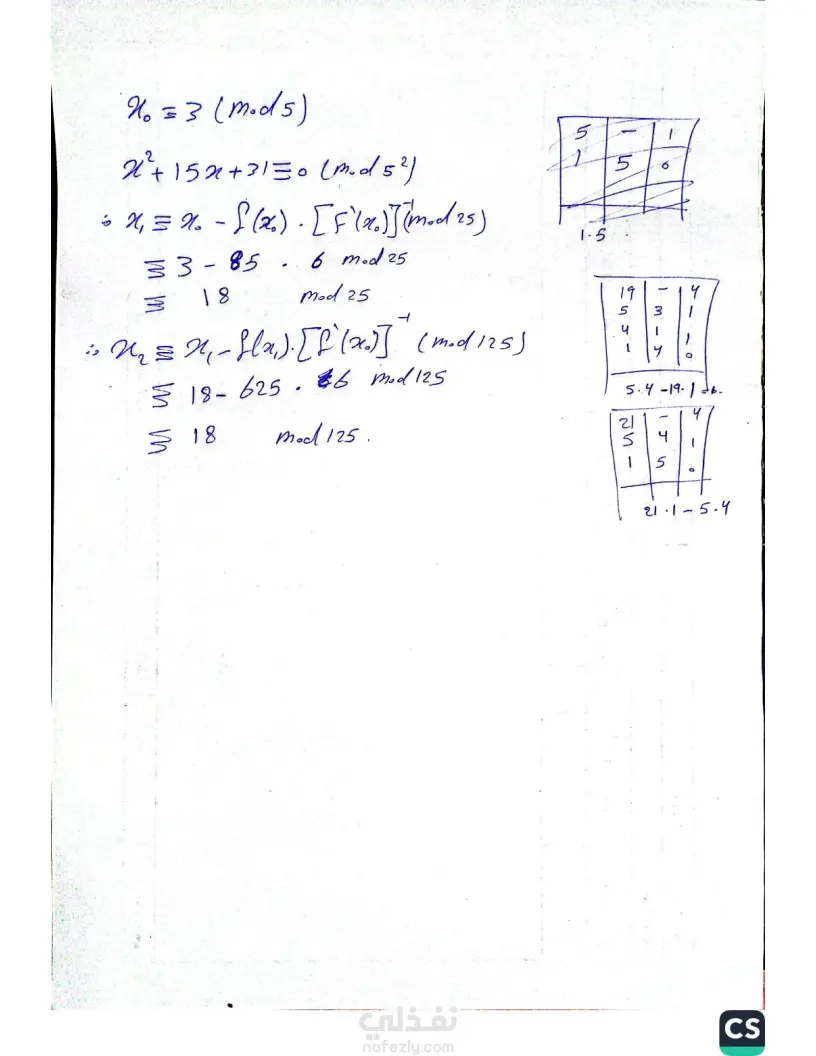 x₀ ≡ 3 (mod 5)
x² + 15x + 31 ≡ 0 (mod 5²)
∴ x₁ ≡ x₀ - f(x₀) · [f`(x₀)]⁻¹ (mod 25)
≡ 3 - 85 · 6 mod 25
≡ 18 mod 25
∴ x₂ ≡ x₁ - f(x₁) · [f`(x₀)]⁻¹ (mod 125)
≡ 18 - 625 · 6 mod 125
≡ 18 mod 125.
5 - 1
1 5 0
1·5
19 - 4
5 3 1
4 1 1
1 4 0
5·4 - 19·1
21 - 4
5 4 1
1 5 0
21·1 - 5·4
نفذلي
nafezly.com
CS